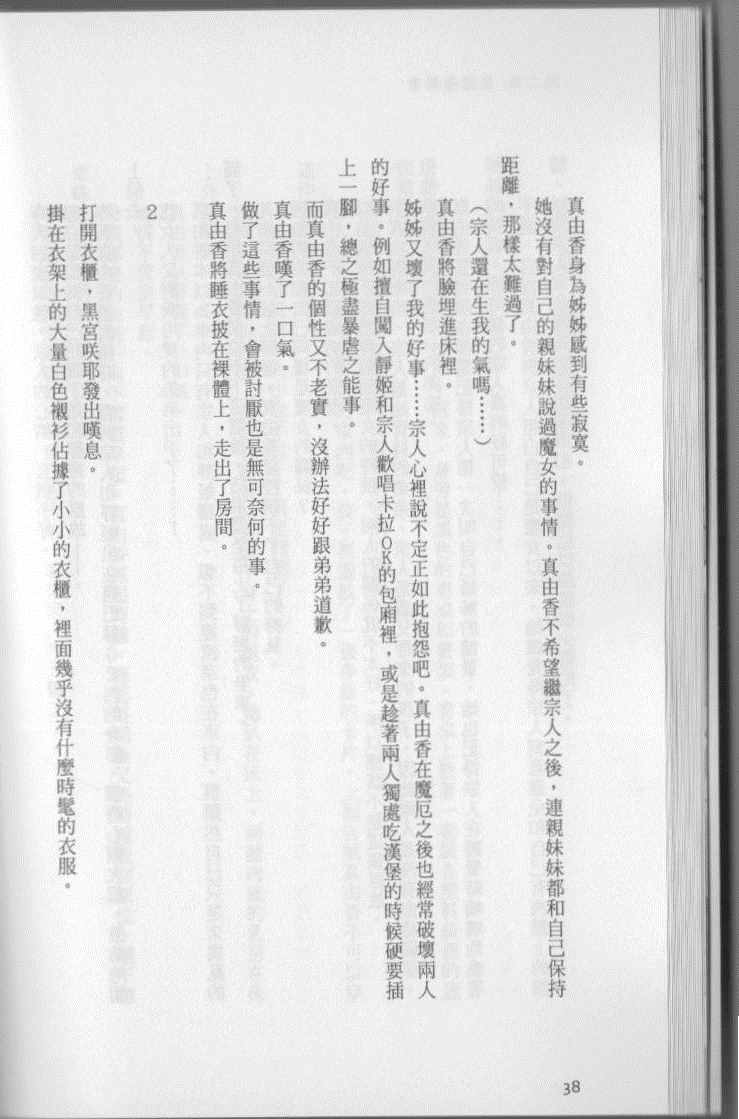 真由香身為姊姊感到有些寂寞。
她沒有對自己的親妹妹說過魔女的事情。真由香不希望繼宗人之後，連親妹妹都和自己保持
距離，那樣太難過了。
（宗人還在生我的氣嗎……）
真由香將臉埋進床裡。
姊姊又壞了我的好事……宗人心裡說不定正如此抱怨吧。真由香在魔厄之後也經常破壞兩人
的好事。例如擅自闖入靜姬和宗人歡唱卡拉OK的包廂裡，或是趁著兩人獨處吃漢堡的時候硬要插
上一腳，總之極盡暴虐之能事。
而真由香的個性又不老實，沒辦法好好跟弟弟道歉。
真由香嘆了一口氣。
做了這些事情，會被討厭也是無可奈何的事。
真由香將睡衣披在裸體上，走出了房間。
2
打開衣櫃，黑宮咲耶發出嘆息。
掛在衣架上的大量白色襯衫佔據了小小的衣櫃，裡面幾乎沒有什麼時髦的衣服。
38